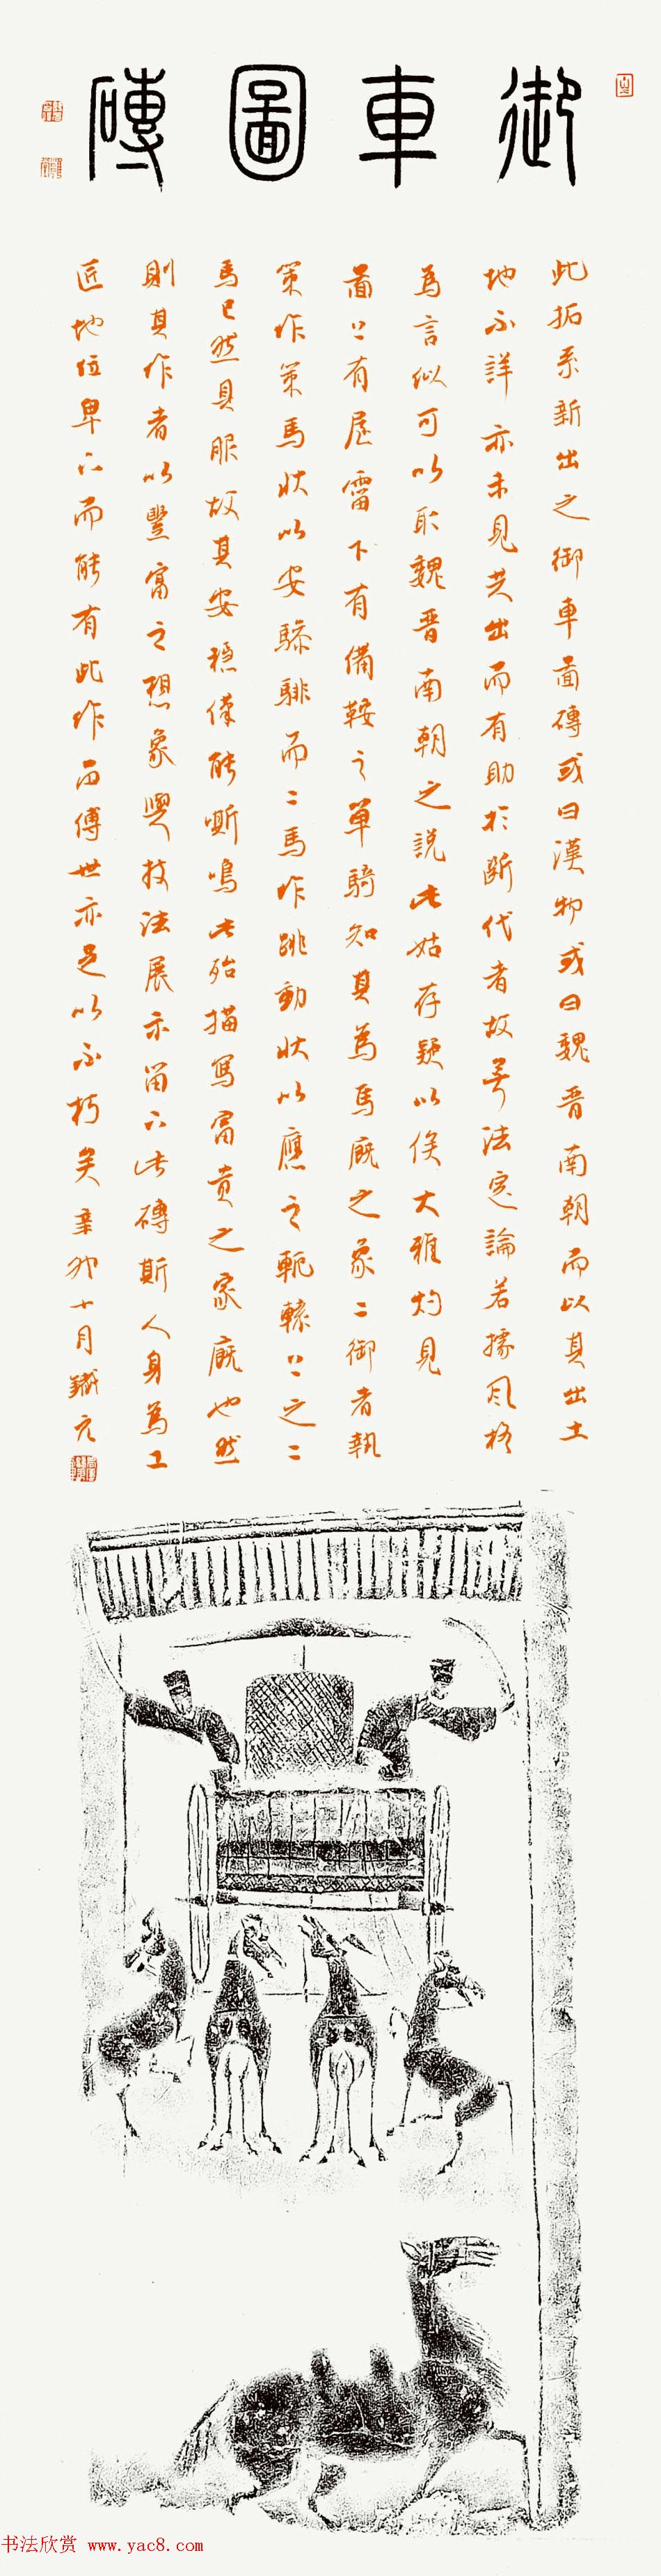 御車圖磚
此拓系新出之御車圖磚或曰漢物或曰魏晉南朝而以其出土
地不詳亦未見共出而有助於斷代者故法定論若據風格
為言似可以取魏晉南朝之説此姑存疑以俟大雅灼見
圖上有屋霤下有備鞍之單騎知其為馬廄之象二御者執
策作策馬狀以安驂騑而二馬作跳動狀以應之軛轅上之二
馬已然具服故其安穩僅能嘶鳴此殆描寫富貴之家廄也然
則其作者以豐富之想象與技法展示留下此磚斯人身為工
匠地位卑下而能有此作而傳世亦足以不朽矣辛卯十月鐵元
书法欣赏 www.yac8.com